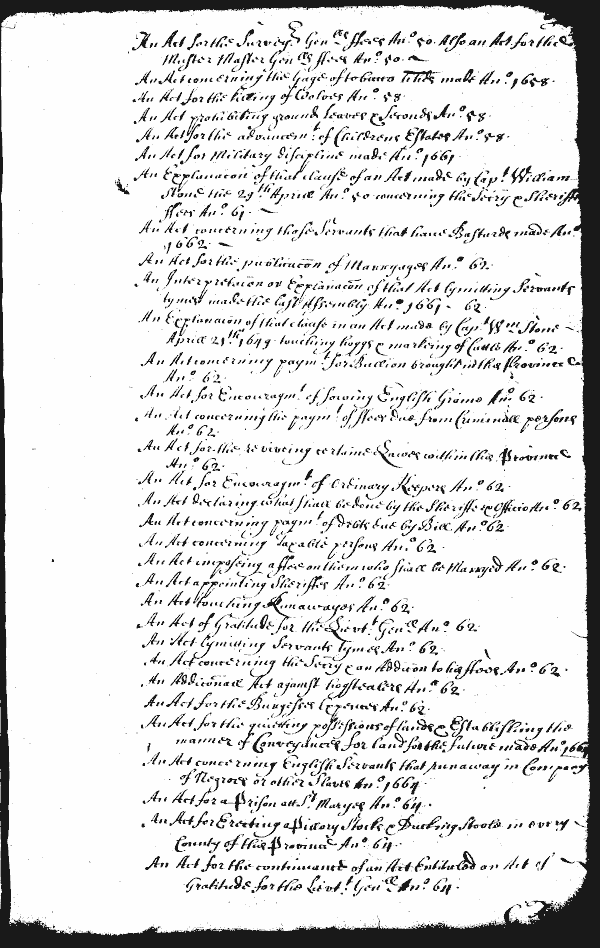 An Act for the Survey.r Gen.lls ffees An.o 50. Also an Act for the
Muster Master Gen.lls ffees An.o 50.
An Act concerning the Gage of tobacco made An.o 1658.
An Act for the killing of Wolves An.o 58.
An Act prohibiting ground leaves & Seconds An.o 58.
An Act for the advancem.t of Childrens Estates An.o 58.
An Act for Military discipline made An.o 1661
An Explanacōn of that clause of an Act made by Cap.t William
Stone the 29.th Aprill An.o 50 concerning the Secry & Sheriffs
ffees An.o 61.
An Act concerning those Servants that have Bastards made An.o
1662.
An Act for the publicacōn of Marryages An.o 62.
An Interpretacōn or Explanacōn of that Act lymitting Servants
tymes made the last Assembly An.o 1661 - 62.
An Explanacōn of that clause in an Act made by Cap.t W.m Stone
Aprill 21.th 1649 touching hoggs & marking of Cattle An.o 62.
An Act concerning paym.t for Bullion brought into this Province
An.o 62.
An Act for Encouragm.t of sowing English Graine An.o 62.
An Act concerning the paym.t of ffees due from Criminall persons
An.o 62.
An Act for the reviveing certaine Lawes within this Province
An.o 62.
An Act for Encouragm.t of Ordinary Keepers An.o 62
An Act declaring what shall be done by the Sheriffe ex Officio An.o 62
An Act concerning paym.t of debts due by Bill An.o 62
An Act concerning Taxable persons An.o 62
An Act imposeing a ffee on them who shall be Marryed An.o 62.
An Act appointing Sheriffes An.o 62.
An Act touching Runawayes An.o 62.
An Act of Gratitude for the Lievt.t Gen.ll An.o 62.
An Act lymitting Servants tymes An.o 62.
An Act concerning the Secry & an Addicon to his ffees An.o 62.
An Addiconall Act against hogstealers An.o 62.
An Act for the Burgesses Expences An.o 62.
An Act for the quieting possessions of lands & Establishing the
manner of Conveyances for land for the future made An.o 1664
An Act concerning English Servants that runaway in Company
of Negroes or other Slaves An.o 1664
An Act for a Prison att S.t Maryes An.o 64.
An Act for Erecting a Pillory Stocks & Ducking Stoole in every
County of this Province An.o 64.
An Act for the continuance of an Act Entituled an Act of
Gratitude for the Lievt.t Gen.ll An.o 64.